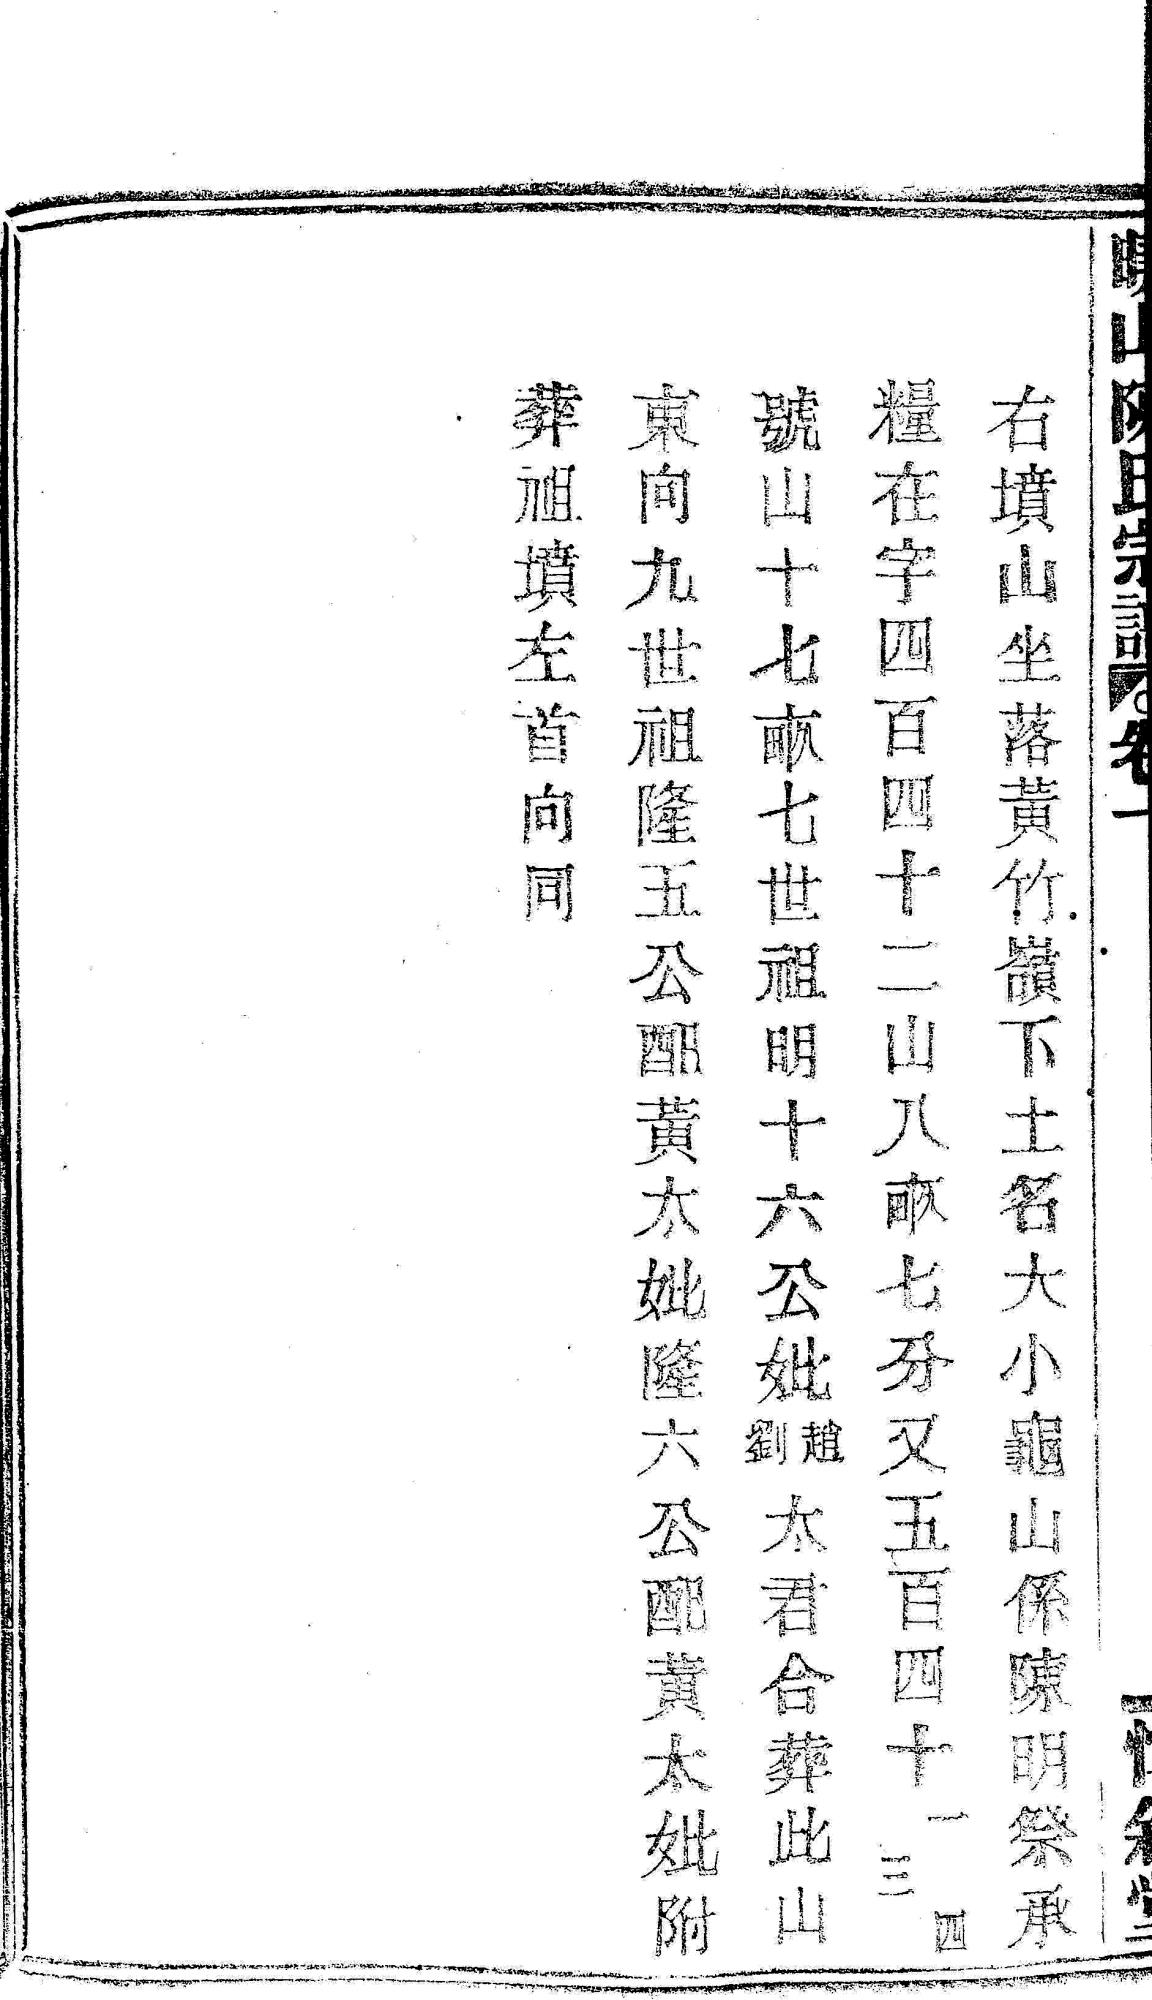 山陳氏宗譜 卷一
右墳山坐落黃竹嶺下土名大小龜山係陳明祭承
糧在字四百四十二山八畝七分又五百四十一三四
號山十七畝七世祖明十六公妣趙劉太君合葬此山
東向九世祖隆五公配黃太妣隆六公配黃太妣附
葬祖墳左首向同